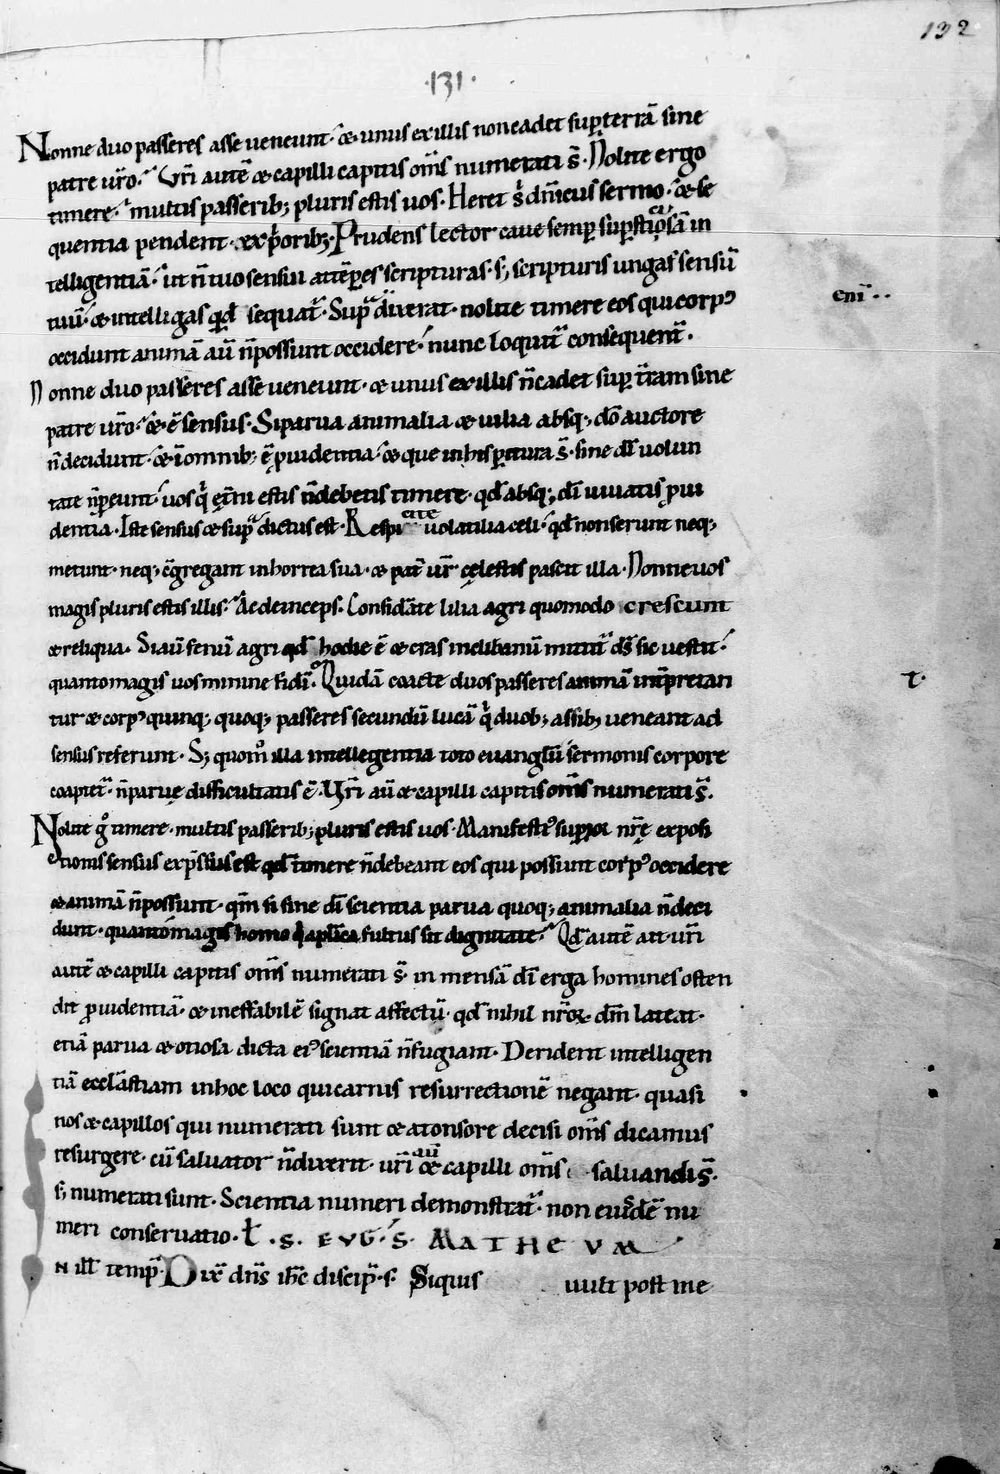 132
·131·
Nonne duo passeres asse veneunt· & unus ex illis non cadet sup̄ terrā sine
patre vr̄o· Vr̄i autē & capilli capitis om̄s numerati s̄· Nolite ergo
timere· multis passerib; pluris estis vos· Heret s̄ dn̄icus sermo· & se
quentia pendent· ex p̄orib;· Prudens lector cave semp̄ sup̄stiosā in
telligentiā· ut n̄ tuo sensui attēp̄es scripturas· s; scripturis iungas sensū
tuū· & intelligas qd̄ sequat̄· Sup̄ dixerat· nolite timere eos qui corp⁹
occidunt animā aū n̄ possunt occidere· nunc loquit̄ consequent̄·
enī··
Nonne duo passeres asse veneunt· & unus ex illis n̄ cadet sup̄ t̄ram sine
patre vr̄o· & ē sensus· Si parva animalia & vilia absq; dō auctore
n̄ decidunt· & ī omnib; ē p̄videntia· & que in his p̄itura s̄· sine dī volun
tate n̄ p̄eunt· vos q̄ et̄ni estis n̄ debetis timere· qd̄ absq; dī vivatis p̄vi
dentia· Iste sensus & sup̄ dictus est· Respicite volatilia celi· qd̄ non serunt neq;
metunt· neq; c̄gregant in horrea sua· & pat̄ vr̄ celestis pascit illa· Nonne vos
magis pluris estis illis· Ac deinceps· Considāte lilia agri quomodo crescunt
& reliqua· Si aū fenū agri qd̄ hodie ē & cras in clibanū mittit̄ ds̄ sic vestit·
quanto magis vos minime fidī· Quidā coacte duos passeres animā int̄pretan
τ·
tur & corp⁹ quinq; quoq; passeres secundū lucā q̄ duob; assib; veneant ad
sensus referunt· S; quom̊ illa intellegentia toto evanglīi sermonis corpore
coaptet̄· n̄ parvę difficultatis ē· Vr̄i aū & capilli capitis om̄s numerati s̄·
Nolite g̊ timere· multis passerib; pluris estis vos· Manifesti⁹ supior nr̄ę exposi
tionis sensus exp̄ssus est qd̄ timere n̄ debeant eos qui possunt corp⁹ occidere
& animā n̄ possunt· qm̄ si sine dī scientia parva quoq; animalia n̄ deci
dunt· quanto magis homo q̄ aplīca fultus sit dignitate· Qd̄ autē ait· vr̄i
autē & capilli capitis om̄s numerati s̄ in mensā dī erga homines osten
dit p̄videntiā· & ineffabilē signat affectū· qd̄ nihil nr̄oꝝ dn̄m lateat·
etiā parva & otiosa dicta ei⁹ scientiā n̄ fugiant· Derident intelligen
tiā ecclāstiam in hoc loco qui carnis resurrectionē negant· quasi
nos & capillos qui numerati sunt & a tonsore decisi om̄s dicamus
resurgere· cū salvator n̄ dixerit· vr̄i aū & capilli om̄s salvandi s̄·
s; numerati sunt· Scientia numeri demonstrat̄· non eiusdē nu
meri conservatio· Ł ·S· EVG· S· MATHEVM
N ill̄ temp̄ Dix̄ dn̄s ih̄c discip̄· s· Siquis vult post me